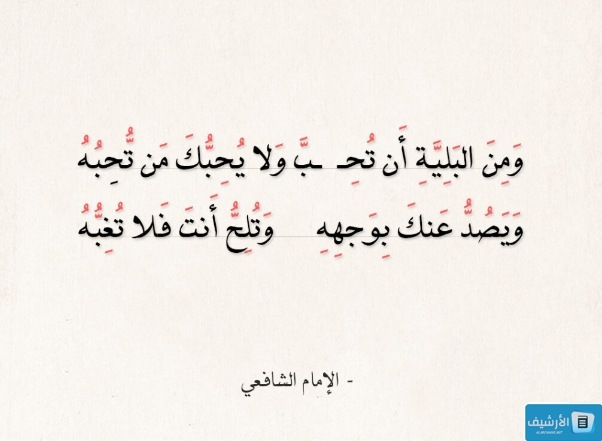 وَمِنَ البَلِيَّةِ أَن تُحِـ ـبَّ وَلا يُحِبُّكَ مَن تُّحِبُهُ
وَيَصُدُّ عَنكَ بِوَجهِهِ وَتُلِحُّ أَنتَ فَلا تُغِبُّهُ
- الإمام الشافعي
الأرشيف